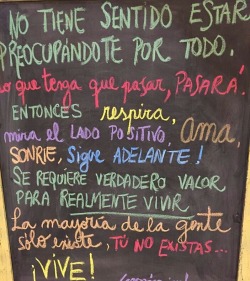 NO TIENE SENTIDO ESTAR
PREOCUPÁNDOTE POR TODO.
Lo que tenga que pasar, PASARÁ!
ENTONCES respira,
mira el LADO POSITIVO, ama,
SONRIE, Sigue ADELANTE!
SE REQUIERE VERDADERO VALOR
PARA REALMENTE VIVIR
La mayoría de la gente
sólo existe, TÚ NO EXISTAS...
¡VIVE!